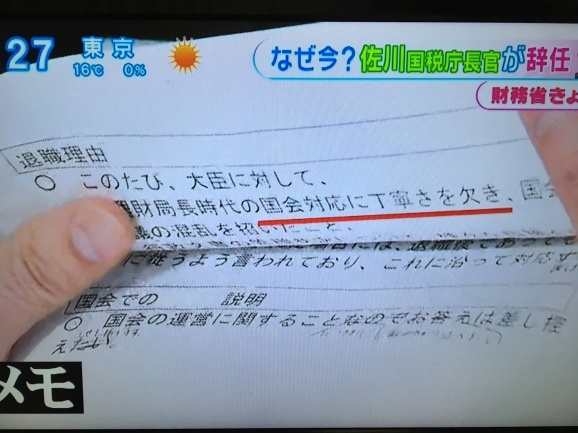 27 東京 16℃ 0%
なぜ今?佐川国税庁長官が辞任
財務省きょ
退職理由
○ このたび、大臣に対して、
財局長時代の国会対応に丁寧さを欠き、国会
の混乱を招いたこと、
に従うよう言われており、これに沿って対応
国会での 説明
○ 国会の運営に関することなのでお答えは差し控
えたい
メモ